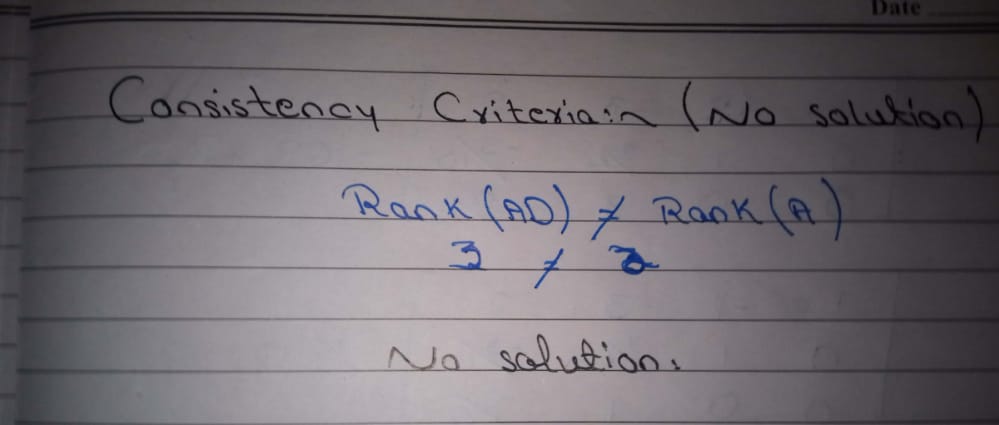 Date
Consistency Criteria:~ (No solution)
Rank (AD) ≠ Rank (A)
3 ≠ 2
No solution.